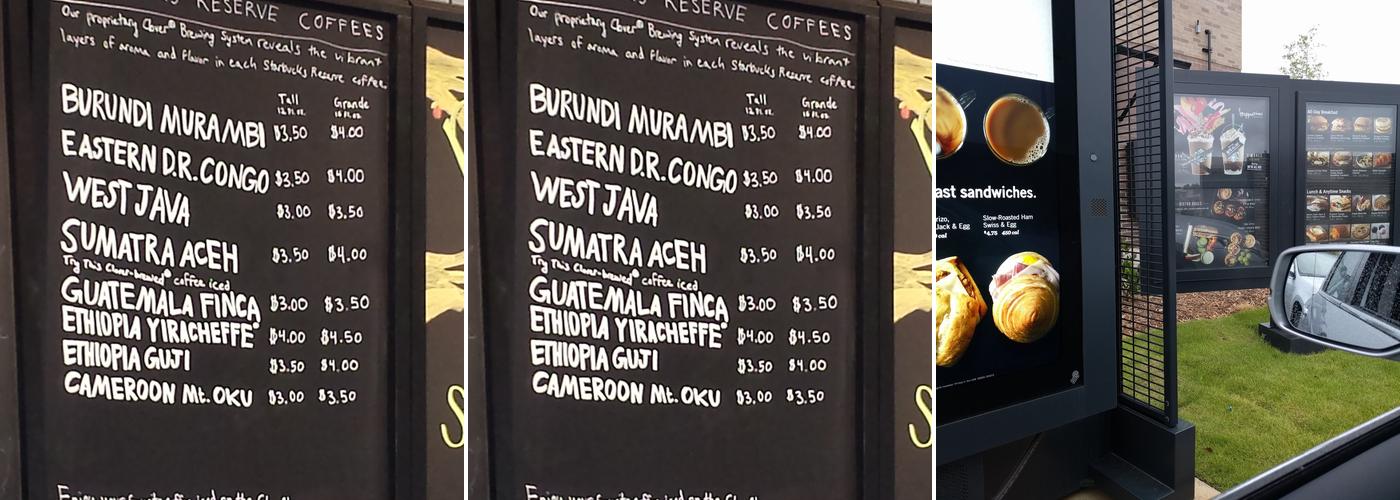 RESERVE COFFEES
Our proprietary Clover® Brewing System reveals the vibrant
layers of aroma and flavor in each Starbucks Reserve coffee.
Tall Grande
12 fl. oz. 16 fl. oz.
BURUNDI MURAMBI $3.50 $4.00
EASTERN D.R. CONGO $3.50 $4.00
WEST JAVA $3.00 $3.50
SUMATRA ACEH $3.50 $4.00
Try This Clover-brewed® coffee iced
GUATEMALA FINCA $3.00 $3.50
ETHIOPIA YIRACHEFFE® $4.00 $4.50
ETHIOPIA GUJI $3.50 $4.00
CAMEROON Mt. OKU $3.00 $3.50
RESERVE COFFEES
Our proprietary Clover® Brewing System reveals the vibrant
layers of aroma and flavor in each Starbucks Reserve coffee.
Tall Grande
12 fl. oz. 16 fl. oz.
BURUNDI MURAMBI $3.50 $4.00
EASTERN D.R. CONGO $3.50 $4.00
WEST JAVA $3.00 $3.50
SUMATRA ACEH $3.50 $4.00
Try This Clover-brewed® coffee iced
GUATEMALA FINCA $3.00 $3.50
ETHIOPIA YIRACHEFFE® $4.00 $4.50
ETHIOPIA GUJI $3.50 $4.00
CAMEROON Mt. OKU $3.00 $3.50
ast sandwiches.
rizo, Slow-Roasted Ham
Jack & Egg Swiss & Egg
cal $4.75 450 cal
All-Day Breakfast
Lunch & Anytime Snacks